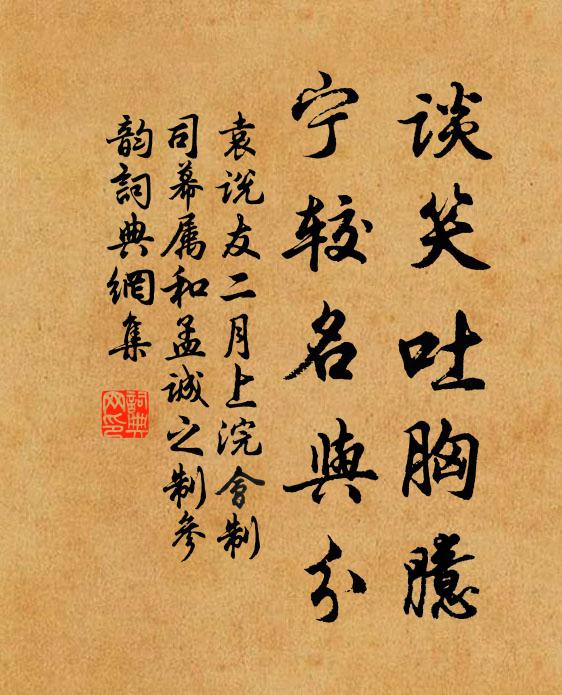 谈笑吐胸臆
宁较名与分
袁说友二月上浣会制
司幕属和孟诚之制参
韵词典网集
词典
网印